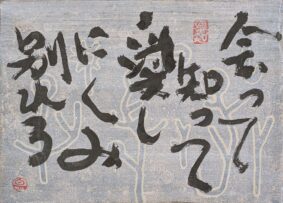 会って
知って
愛し
にくみ
別れる